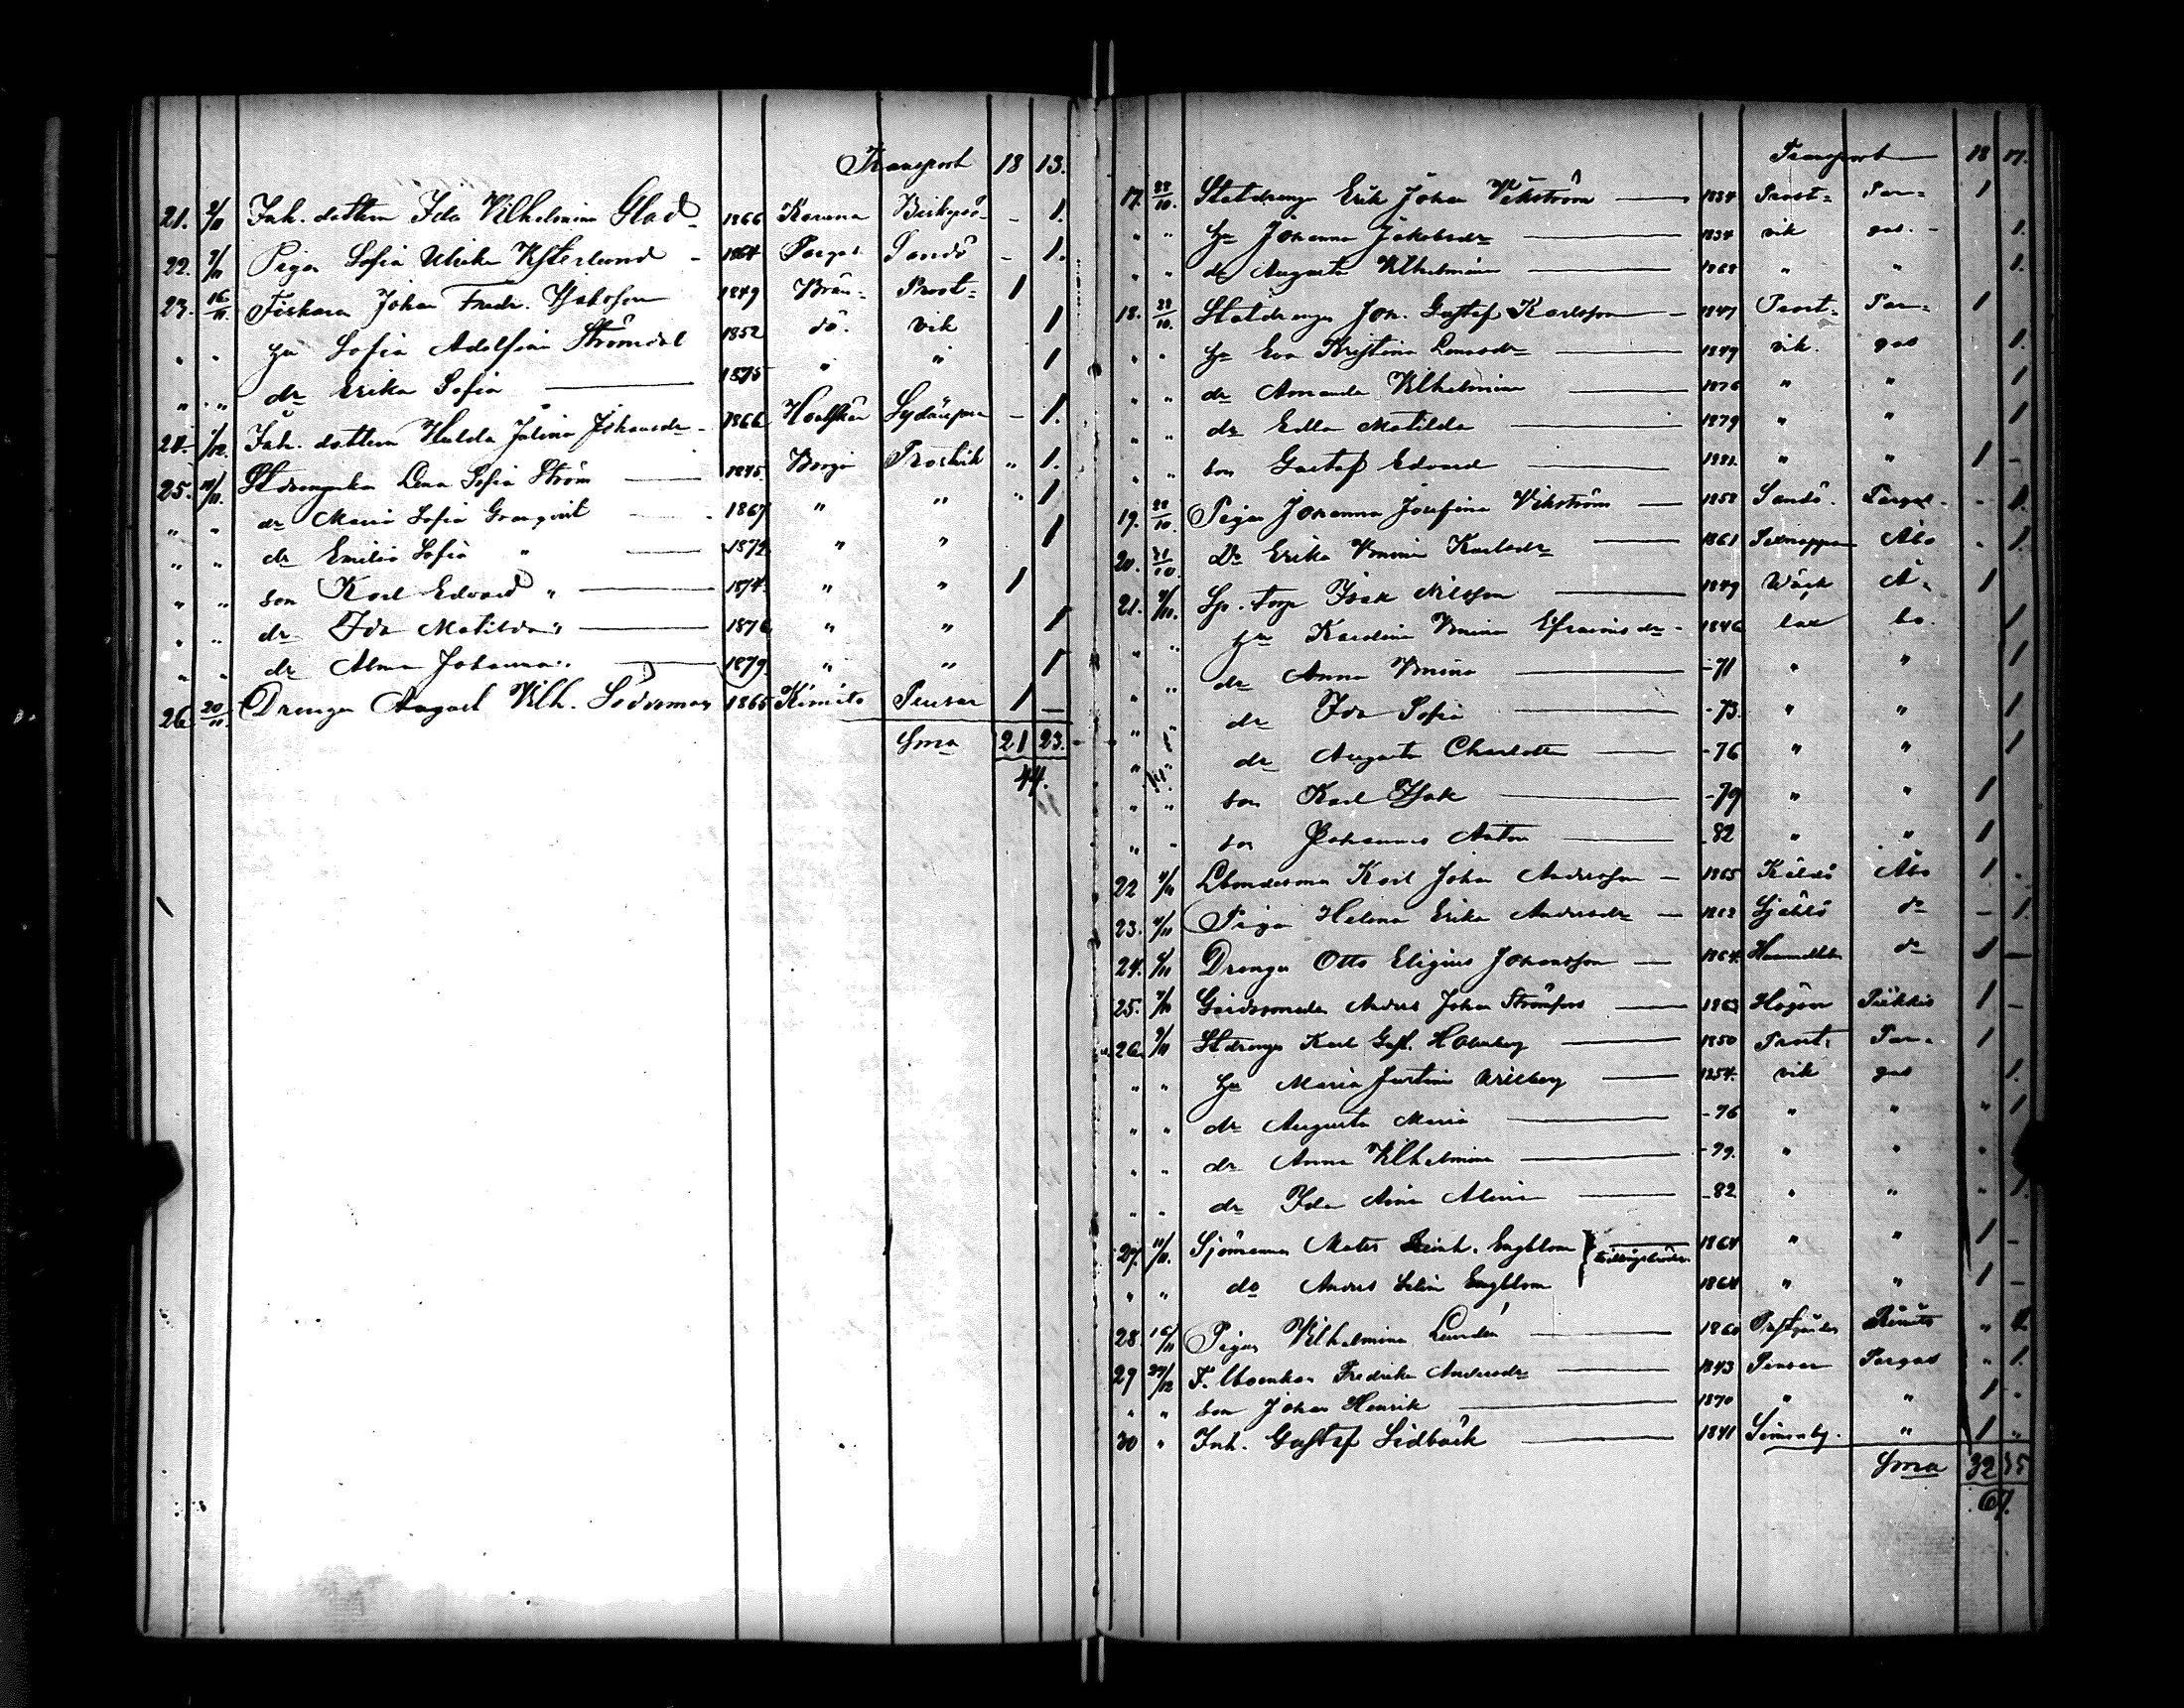 Transport 18 13.
21. 2/11 Inh. dottern Ida Vilhelmina Glad 1866 Karuna Biskopsö - 1.
22. 7/11 Pigan Sofia Ulrika Österlund - 1864 Pargas Sandö - 1.
23. 16/11. Fiskaren Johan Fredr. Isaksson 1849 Brän- Prost- 1
" " hu Sofia Adolfina Strömdal 1852 dö. vik 1
" " dr Erika Sofia 1875 " " 1
24. 1/12. Inh. dottern Hulda Julina Johansdr - 1866 Houtskär Lydarsperä - 1.
25. 11/11. Stdrengenka Lena Sofia Ström 1845. Borgå Prostvik " 1.
" " dr Maria Sofia Granqvist 1867 " " " 1
" " dr Emilia Sofia " 1872 " " 1
" " son Karl Edvard " 1874. " " 1
" " dr Ida Matilda " 1876 " " 1
" " dr Alma Johanna " 1879. " " 1
26. 20/11. Drengen August Vilh. Söderman 1865 Kimito Pensar 1 -
Sma 21 23.
44.
Transport 18 17.
17. 28/10. Statdrengen Erik Johan Vikström 1834 Prost- Par- 1
" " hu Johanna Jakobsdr 1834 vik gas. - 1.
" " dr Augusta Vilhelmina 1868 " " 1.
18. 28/10. Statdrengen Joh. Gustaf Karlsson - 1847 Prost- Par- 1
" " hu Eva Kristina Lenasdr 1849 vik. gas 1.
" " dr Amanda Vilhelmina 1876 " " 1
" " dr Edla Matilda 1879 " " 1
" " son Gustaf Edvard 1882. " " 1 -
19. 28/10. Pigan Johanna Josefina Vikström 1858 Sandö. Pargas - 1.
20. 31/10. Do Erika Vmina Karlsdr 1861 Pexnappa Åbo - 1.
21. 2/11. Sp. torp Isak Nilsson 1849 Wäck Å- 1
" " hu Karolina Vmina Efraimsdr - 1846 lax bo. 1
" " dr Anna Vmina -71 " " 1
" " dr Ida Sofia -73. " " 1
" " dr Augusta Charlotta -76 " " 1
" " son Karl Isak -79 " " 1
" " son Johannes Anton -82 " " 1
22 4/11 Lbondesonen Karl Johan Andersson - 1865 Käldö Åbo 1 -
23. 4/11 Pigan Helena Erika Andersdr - 1862 Själö do - 1.
24. 4/11 Drengen Otto Eligius Johansson - 1864. do 1 -
25. 7/11 Gårdssmeden Anders Johan Strömfors 1863 Högsar Piikkis 1 -
26. 9/11 Stdrengen Karl Gust. Holmberg 1850 Prost- Par- 1
" " hu Maria Justina Wreeberg 1854. vik gas 1.
" " dr Augusta Maria -76 " " " 1
" " dr Anna Vilhelmina -79. " " "
" " dr Ida Aina Alina -82 " " " 1.
27. 11/11. Sjömannen Mats Reinh. Engblom } tvillingsbröder 1864 " " 1 -
" " do Anders Selim Engblom 1864 " " 1 -
28. 16/11 Pigan Vilhelmina Lundén 1860 Kimito " 1
29 27/12 F. lboenkan Fredrika Andersdr 1843 Pensar Pargas " 1.
" " son Johan Henrik 1870 " " 1 -
30 " Inh. Gustaf Lidbäck 1841 Simonby. " 1 "
Sma 32 35
67.